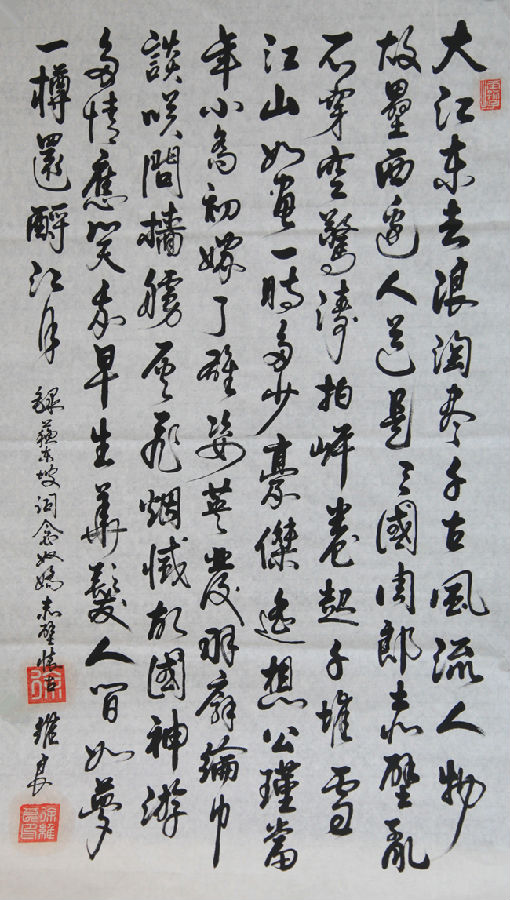 大江東去浪淘盡千古風流人物
故壘西邊人道是三國周郎赤壁亂
石穿空驚濤拍岸卷起千堆雪
江山如畫一時多少豪傑遙想公瑾當
年小喬初嫁了雄姿英發羽扇綸巾
談咲間檣艣灰飛烟滅故國神游
多情應笑我早生華髮人間如夢
一樽還酹江月
錄蘇東坡詞念奴嬌赤壁懷古
徐
維